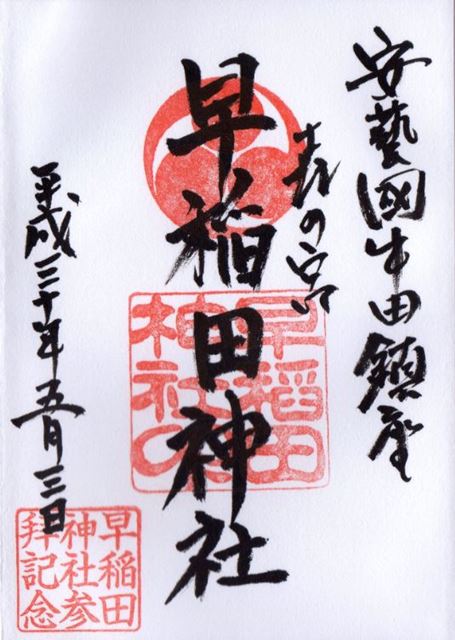 安藝國牛田鎮座
の宮
早稲田神社
平成三十年五月三日
早稲田
神社
早稲田
神社参
拝記念